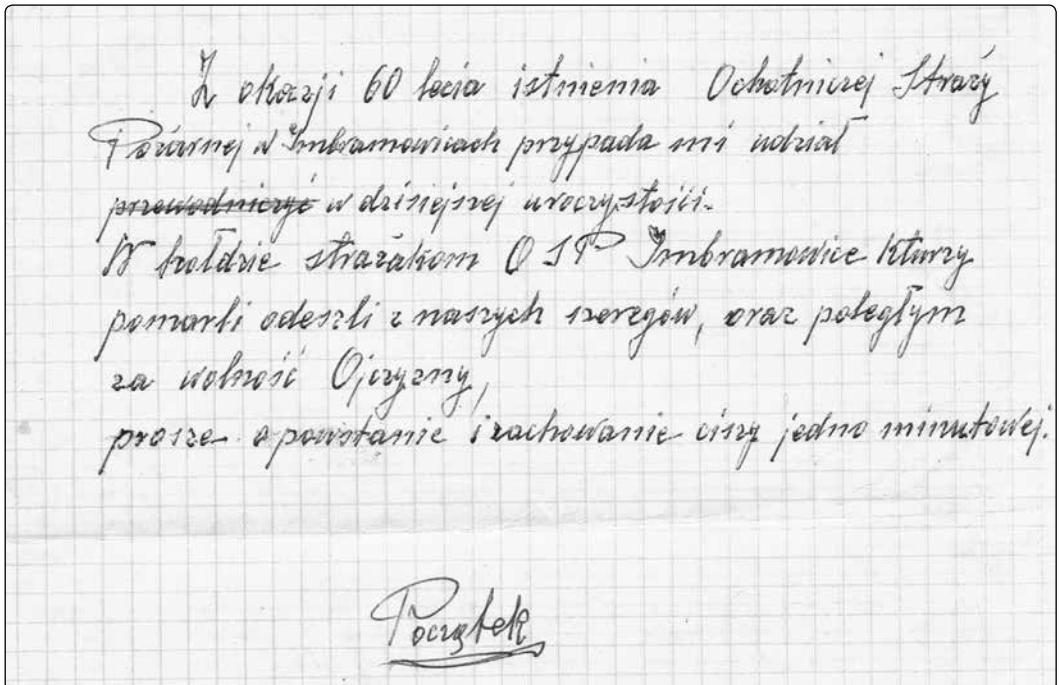 Z okazji 60 lecia istnienia Ochotniczej Straży
Pożarnej w Imbramowicach przypada mi udział
przewodniczyć w dzisiejszej uroczystości.
W hołdzie strażakom O S P Imbramowice Kturzy
pomarli odeszli z naszych szeregów, oraz poległym
za wolność Ojczyzny,
prosze o powstanie i zachowanie ciszy jedno minutowej.
Początek